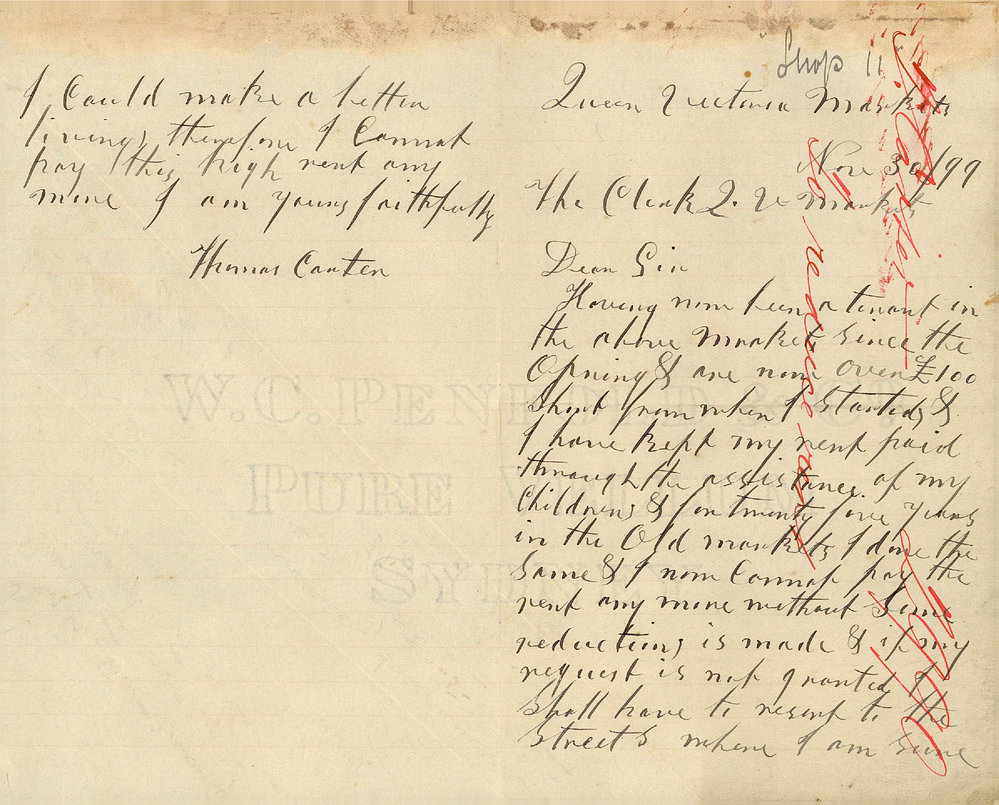 "Shop 11"
Queen Victoria Markets
Nov 30/99
The Clerk Q. V Markets
Dear Sir
Having now been a tenant in
the above Markets since the
Opning & are now over £100
Short from when I started, &
I have kept my rent paid
through the assistance of my
Children, & for twenty five years
in the Old markets I done the
Same & I now Cannot pay the
rent any more without Some
reduction, is made & if my
request is not granted I
Shall have to resort to the
Streets where I am Sure
I Could make a better
living, therefore I Cannot
pay this high rent any
more I am yours faithfully
Thomas Carter
No reduce rent
W.C. PENFOLD & Co
PURE VELLUM
SYDNEY